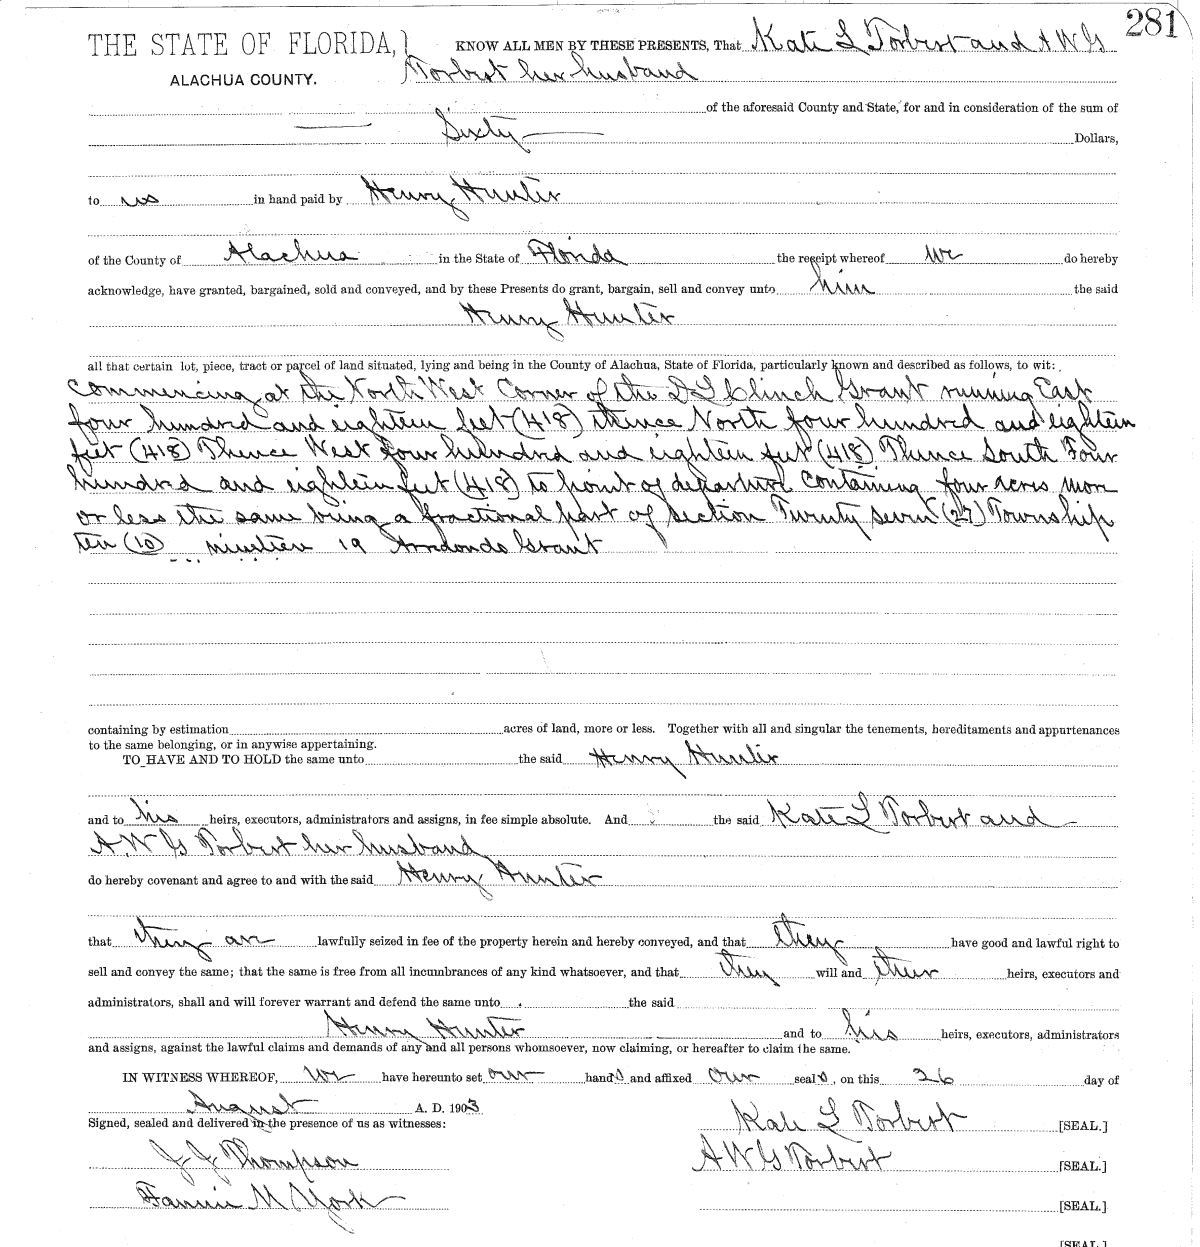 281
THE STATE OF FLORIDA,} KNOW ALL MEN BY THESE PRESENTS, That Kate L Torbert and A W G
ALACHUA COUNTY. Torbert her husband
of the aforesaid County and State, for and in consideration of the sum of
Sixty Dollars,
to us in hand paid by Henry Hunter
of the County of Alachua in the State of Florida the receipt whereof we do hereby
acknowledge, have granted, bargained, sold and conveyed, and by these Presents do grant, bargain, sell and convey unto him the said
Henry Hunter
all that certain lot, piece, tract or parcel of land situated, lying and being in the County of Alachua, State of Florida, particularly known and described as follows, to wit:
Commencing at the North West Corner of the D L Clinch Grant running East
four hundred and eighteen feet (418) thence North four hundred and eighteen
feet (418) Thence West four hundred and eighteen feet (418) Thence South Four
hundred and eighteen feet (418) to point of departure Containing four acres more
or less the same being a fractional part of section Twenty seven (27) Township
ten (10) nineteen 19 Arredondo Grant
containing by estimation acres of land, more or less. Together with all and singular the tenements, hereditaments and appurtenances
to the same belonging, or in anywise appertaining.
TO HAVE AND TO HOLD the same unto the said Henry Hunter
and to his heirs, executors, administrators and assigns, in fee simple absolute. And the said Kate L Torbert and
A W G Torbert her husband
do hereby covenant and agree to and with the said Henry Hunter
that they are lawfully seized in fee of the property herein and hereby conveyed, and that they have good and lawful right to
sell and convey the same; that the same is free from all incumbrances of any kind whatsoever, and that they will and their heirs, executors and
administrators, shall and will forever warrant and defend the same unto the said
Henry Hunter and to his heirs, executors, administrators
and assigns, against the lawful claims and demands of any and all persons whomsoever, now claiming, or hereafter to claim the same.
IN WITNESS WHEREOF, we have hereunto set our hands and affixed our seals, on this 26 day of
August A. D. 1903
Signed, sealed and delivered in the presence of us as witnesses: Kate L Torbert [SEAL.]
J J Thompson A W G Torbert [SEAL.]
Fannie M York [SEAL.]
[SEAL.]